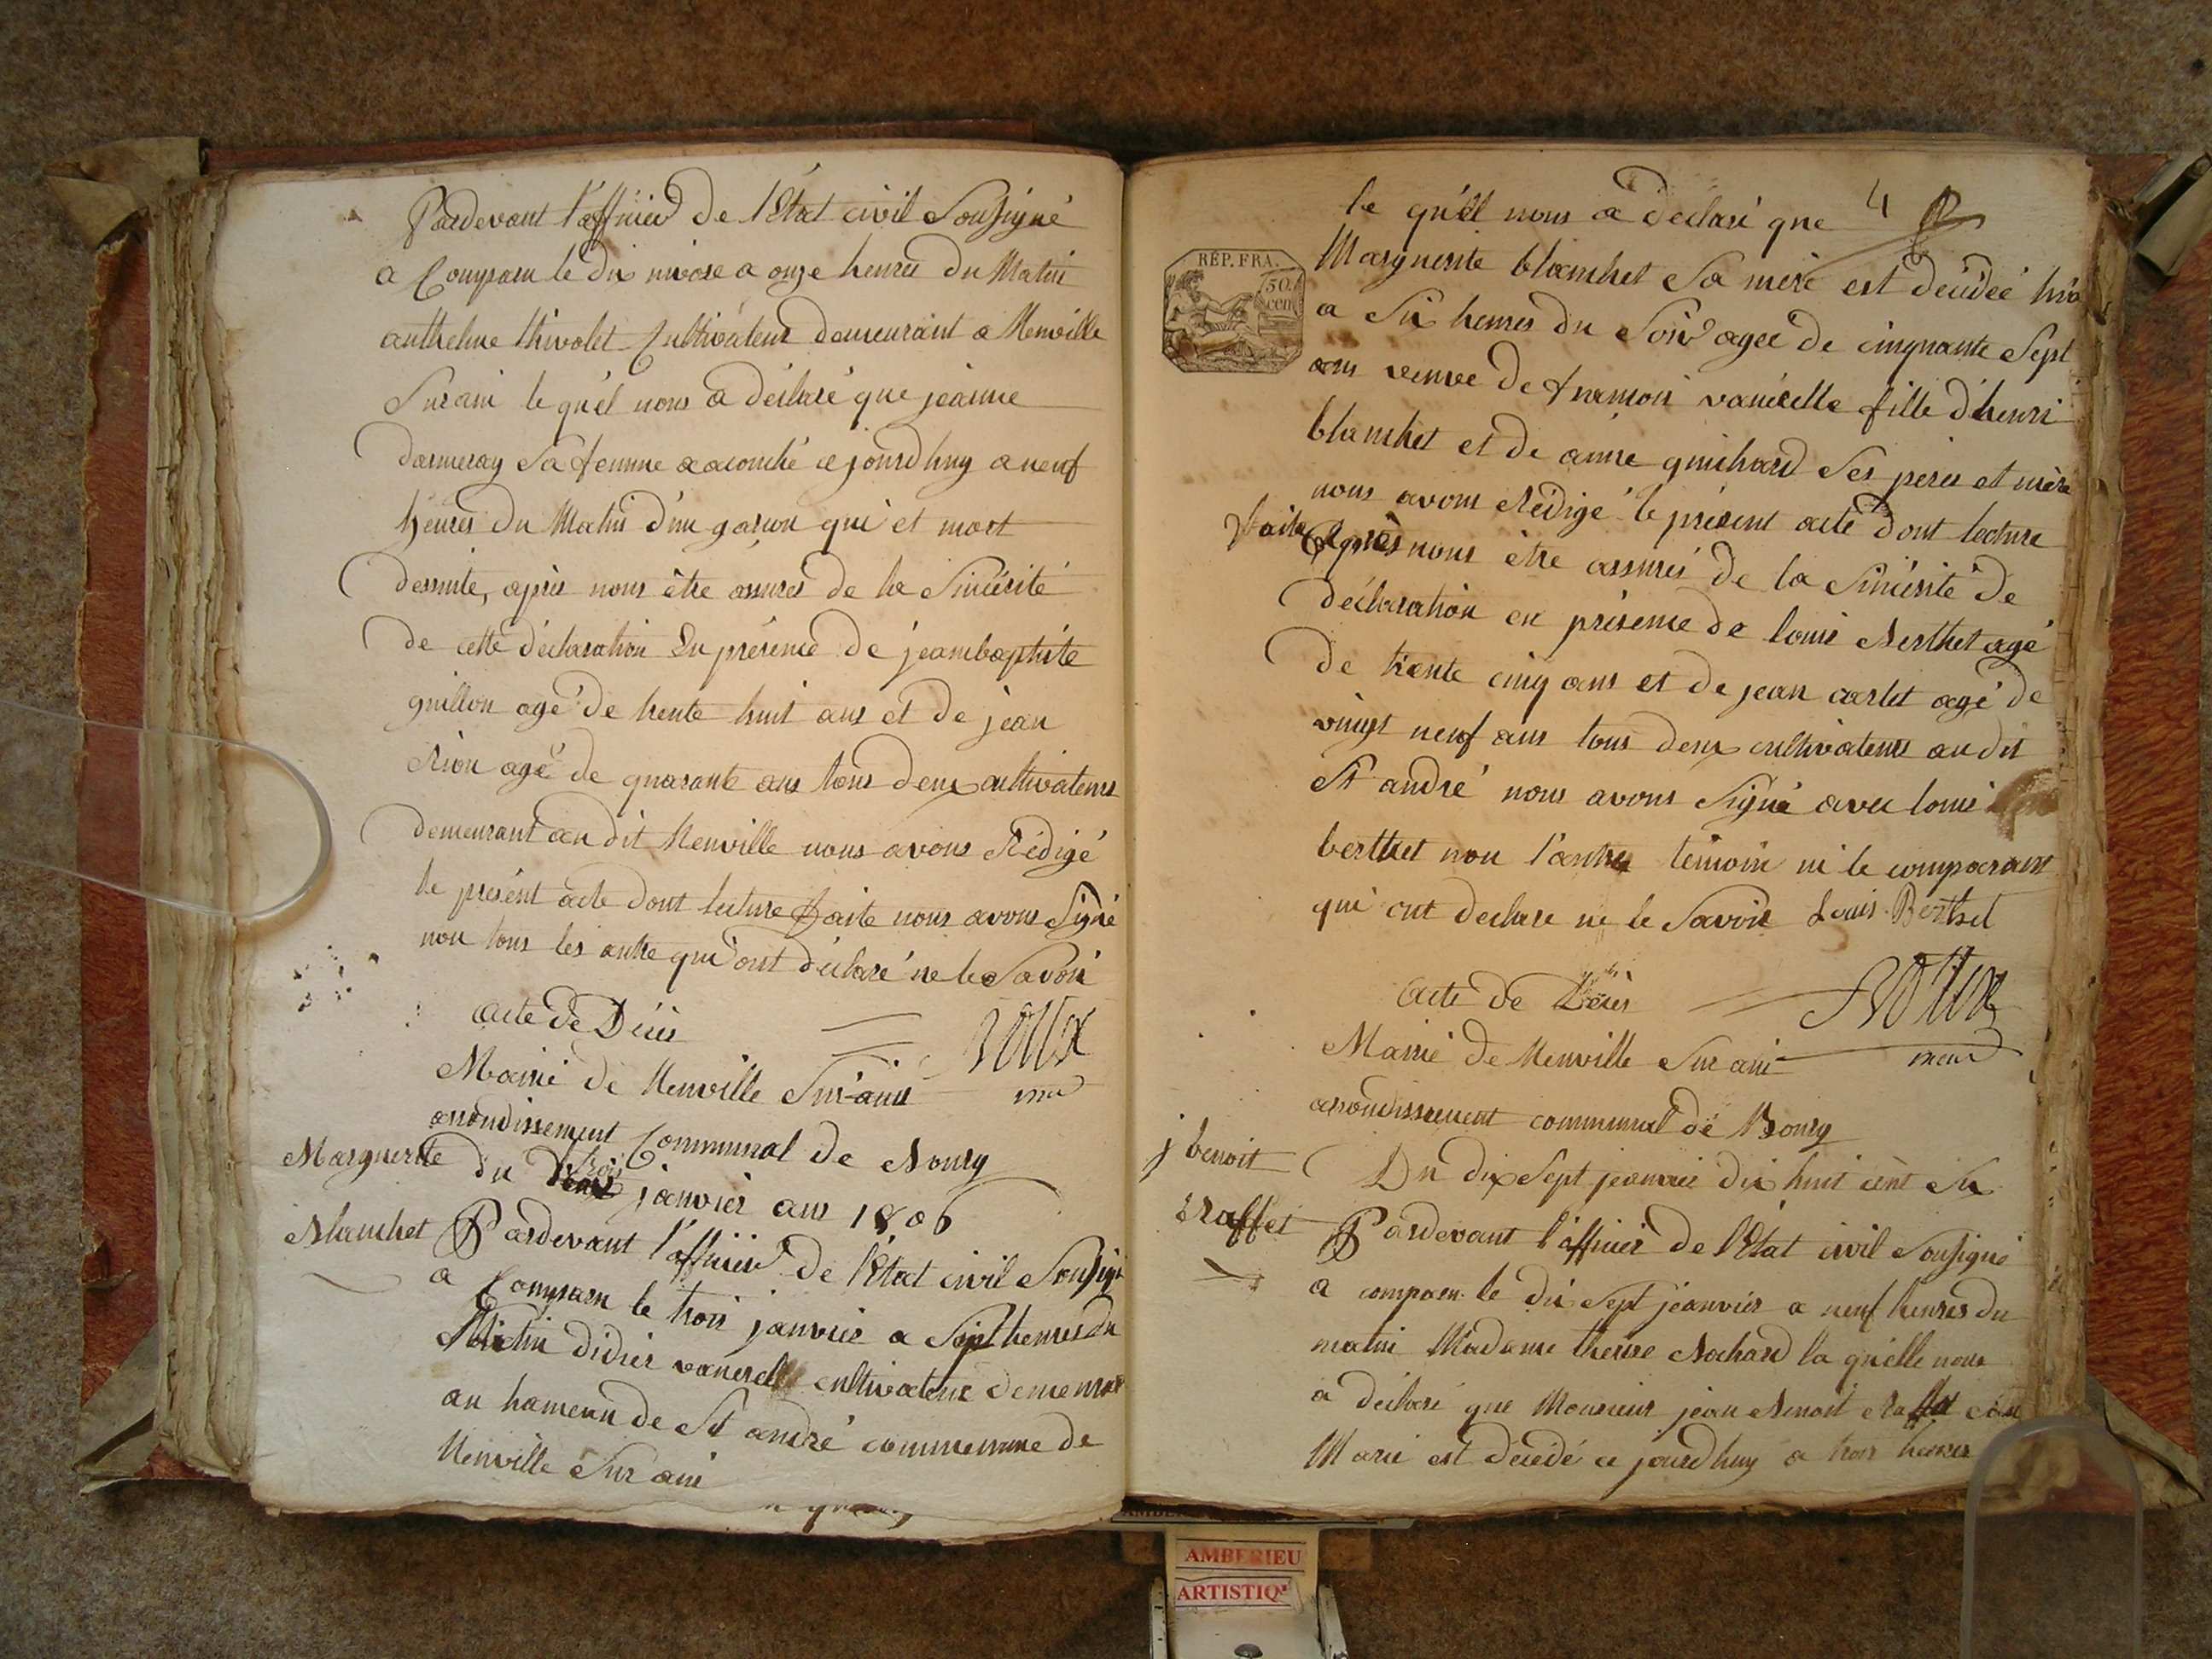 Pardevant l'officier de l'Etat civil Sousigné
a Comparu le dix nivose a onze heures du Matin
anthelme thivolet Cultivateur demeurant a Neuville
Surain le quél nous a déclaré que jeanne
darmeray Sa femme a acouché ce jourdhuy a neuf
heures du Matin d'un garson qui et mort
dessuite, après nous être assurés de la Sincérité
de cette déclaration En présence de jeanbaptiste
guillon agé de trente huit ans et de jean
Rion agé de quarante ans tous deux cultivateurs
demeurant au dit Neuville nous avons Rédigé
le présent acte dont lecture faite nous avons Signé
non tous les autre qui ont déclaré ne le Savoir
acte de Décès
Roux
Mairie de Neuville Sur-ain
arrondissement Communal de Bourg
Marguerite
du trois janvier an 1806
Blanchet
Pardevant l'officier de l'Etat civil Sousigné
a Comparu le trois janvier a Sept heures du
Matin didier vanerelle cultivateur demeurant
au hameau de St andré commemune de
Neuville Sur ain
4
le quél nous a déclaré que
RÉP. FRA.
50.
cen
Marguerite blanchet Sa mere est décédée hier
a Six heures du Soir agée de cinquante Sept
ans veuve de francois vanerelle fille d'henri
blanchet et de anne guichard Ses peres et mère
nous avons Rédigé le présent acte dont lecture
faite après nous être assurés de la Sincérité de
déclaration en présence de louis Berthet agé
de trente cinq ans et de jean carlet agé de
vingt neuf ans tous deux cultivateurs au dit
St andré nous avons Signé avec louis
berthet non l'autre témoin ni le comparant
qui ont declare ne le Savoir Louis Berthet
Roux
acte de Décès
Mairie de Neuville Sur ain
maire
arrondissement communal de Bourg
j benoit
Du dix Sept jeanvier dix huit cent Six
Raffet
Pardevant l'officier de l'Etat civil Sousigné
a comparu le dix Sept jeanvier a neuf heures du
matin Madame therese Bochard la quélle nous
a déclaré que Monsieur jean Benoit Raffet Son
Marie est décédé ce jourdhuy a trois heures
AMBERIEU
ARTISTIQ